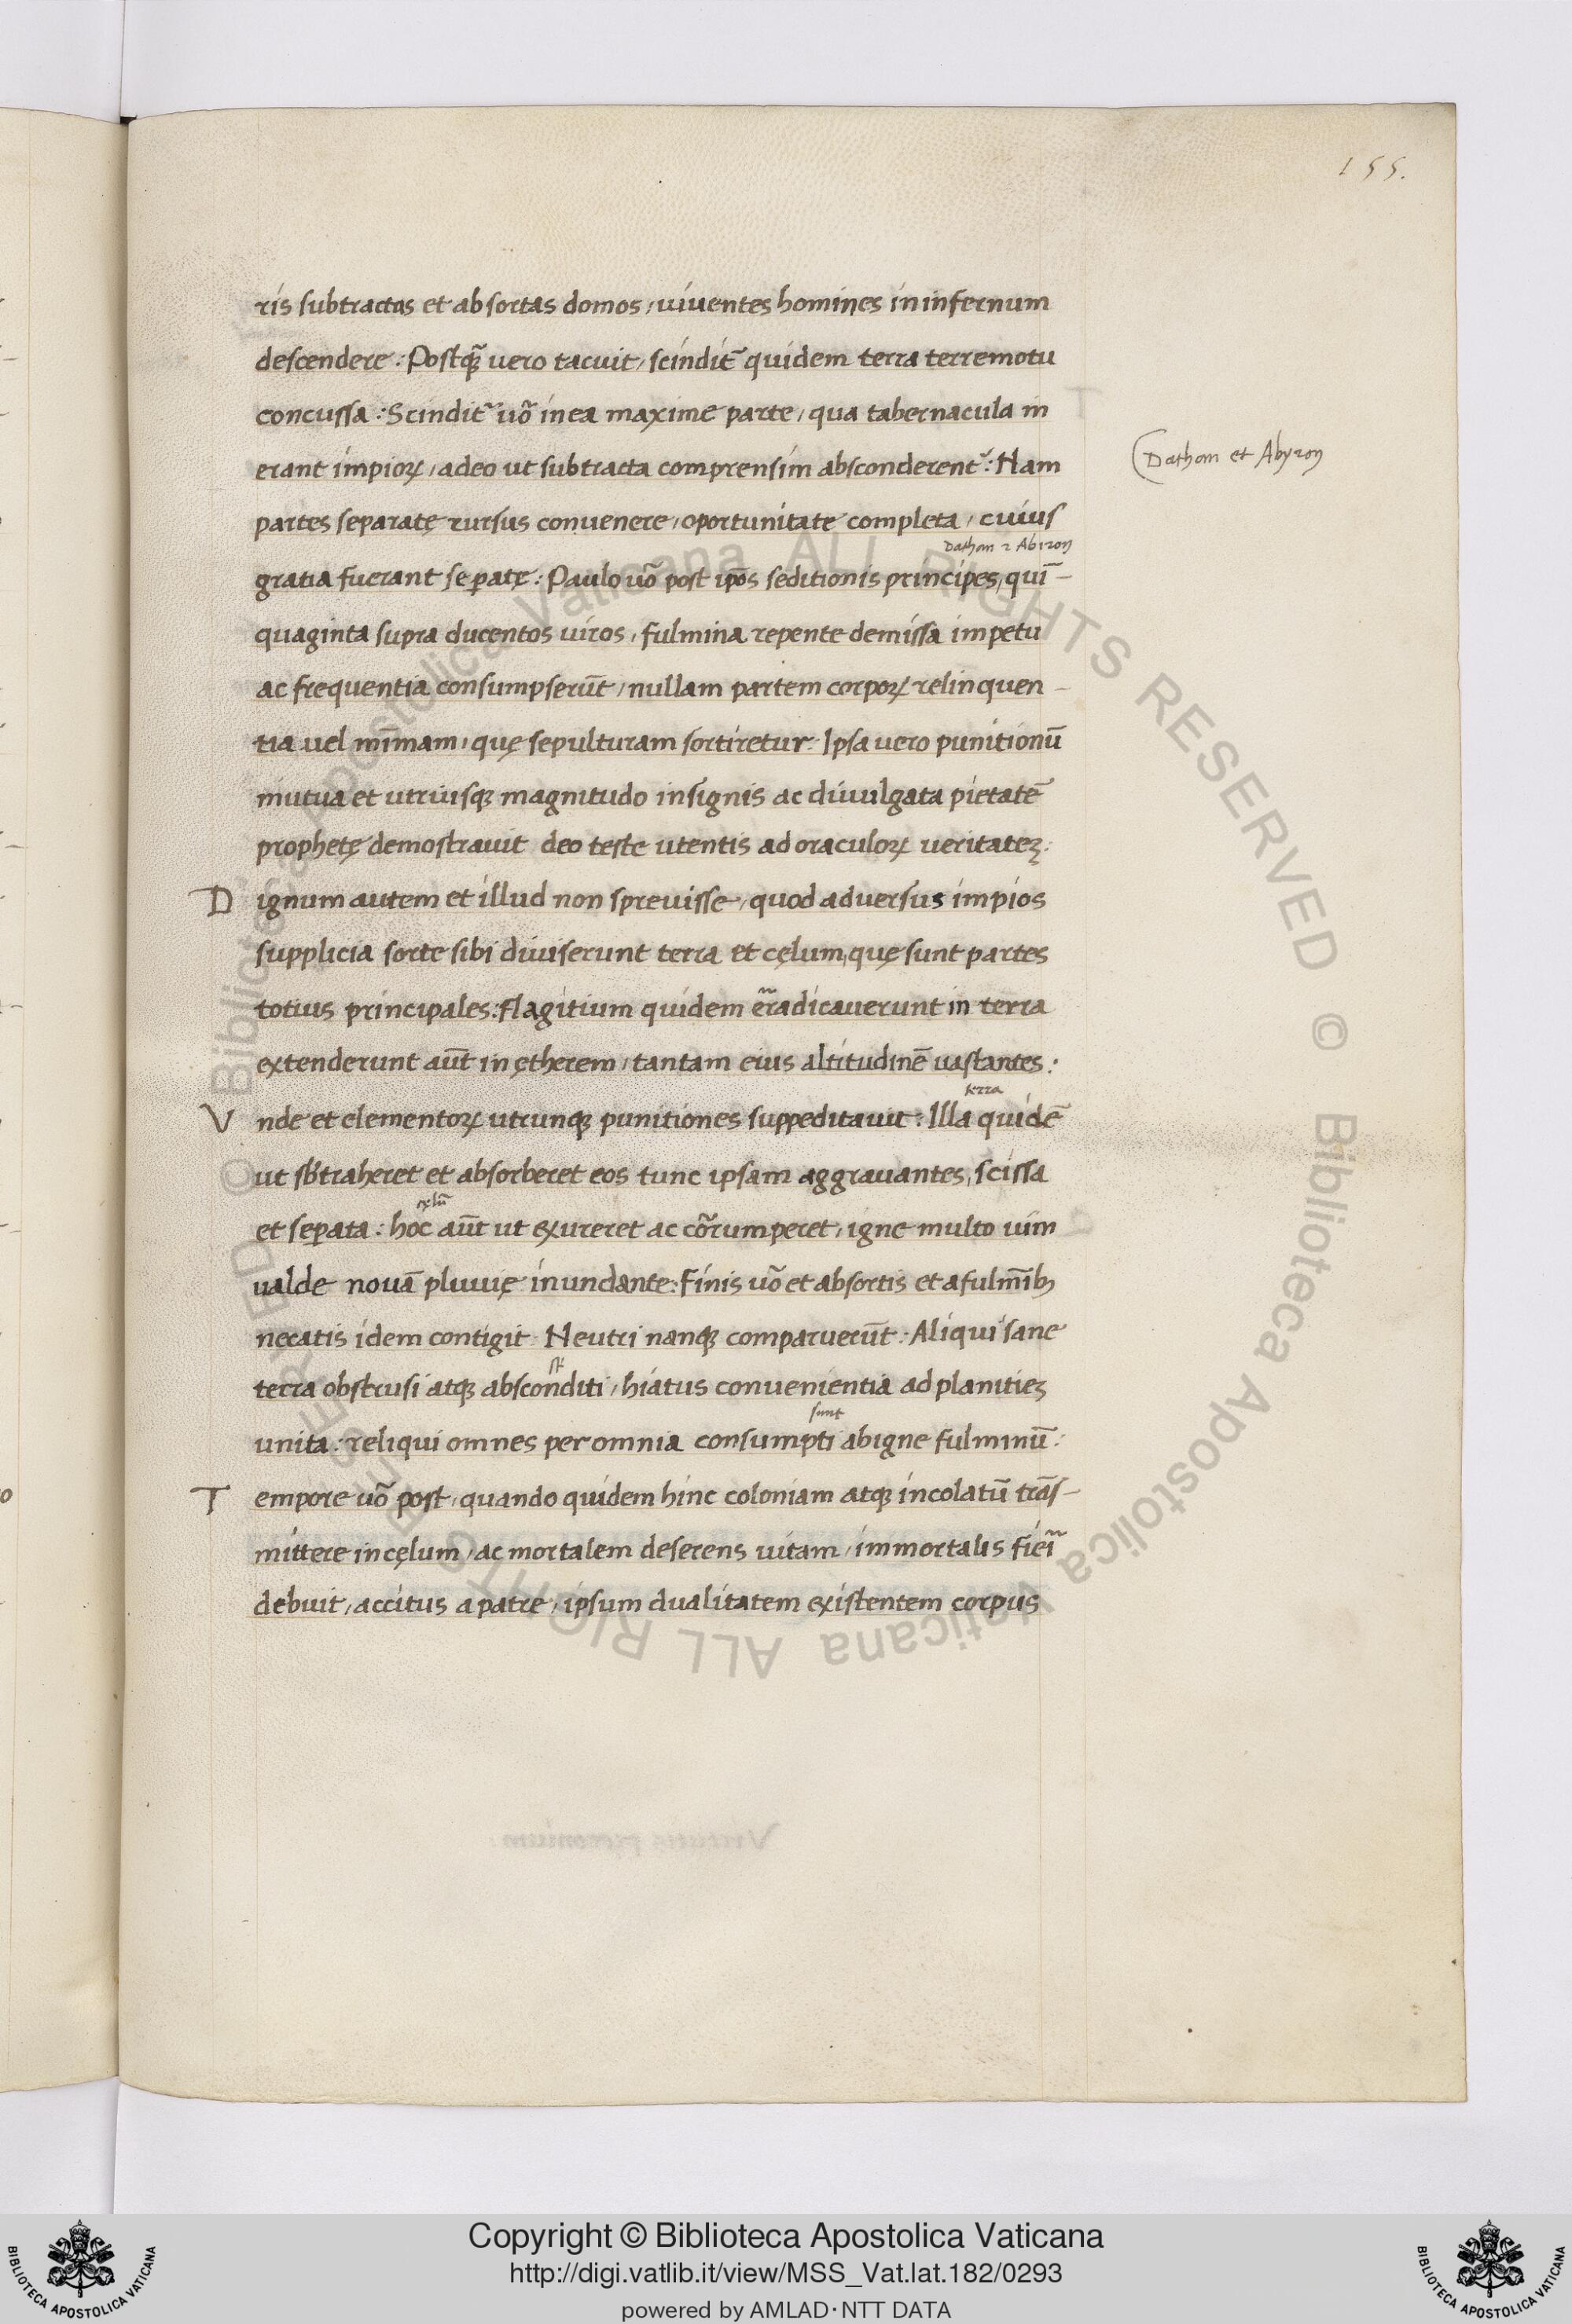 155.
ris subtractas et absortas domos, uiuentes homines in infernum
descendere: Postq̃ vero tacuit, scindit᷑ quidem terra terremotu
concussa: Scindit᷑ uõ in ea maxime parte, qua tabernacula in
erant impioꝝ, adeo ut subtracta comprensim absconderent᷑: Nam
Dathan et Abyron
partes separatę rursus conuenere, oportunitate completa, cuius
Dathan ⁊ Abiron
gratia fuerant seꝑatę: Paulo uõ post ip̄os seditionis principes, quī-
quaginta supra ducentos uiros, fulmina repente demissa impetu
ac frequentia consumpserūt, nullam partem corpoꝝ relinquen-
tia uel mīmam, quę sepulturam sortiretur: Ipsa vero punitionū
mutua et utriusqꝫ magnitudo insignis ac diuulgata pietatē
prophetę demostrauit deo teste utentis ad oraculoꝝ ueritateꝫ:
Dignum autem et illud non spreuisse, quod aduersus impios
supplicia sorte sibi diuiserunt terra et cęlum, quę sunt partes
totius principales: Flagitium quidem er̃adicauerunt in terra
extenderunt aūt in ętherem, tantam eius altitudinē uastantes:
terra
Vnde et elementoꝝ utrunqꝫ punitiones suppeditauit: Illa quidē
ut sb̾traheret et absorberet eos tunc ipsam aggrauantes, scissa
cęlū
et seꝑata: hoc aūt ut exureret ac cõrumperet, igne multo uim
ualde nouā pluuię inundante: Finis uõ et absortis et a fulmīb᷒
necatis idem contigit: Neutri nanqꝫ comparuerūt: Aliqui sane
st̄
terra obstrusi atqꝫ absconditi, hiatus conuenientia ad planitieꝫ
sunt
unita: reliqui omnes per omnia consumpti ab igne fulminū:
Tempore uõ post, quando quidem hinc coloniam atqꝫ incolatū trās-
mittere in cęlum, ac mortalem deserens uitam, immortalis fiei᷑
debuit, accitus a patre, ipsum dualitatem existentem corpus
Copyright © Biblioteca Apostolica Vaticana
http://digi.vatlib.it/view/MSS_Vat.lat.182/0293
powered by AMLAD·NTT DATA
BIBLIOTECA APOSTOLICA VATICANA
BIBLIOTECA APOSTOLICA VATICANA
© Biblioteca Apostolica Vaticana ALL RIGHTS RESERVED © Biblioteca Apostolica Vaticana ALL RIGHTS RESERVED